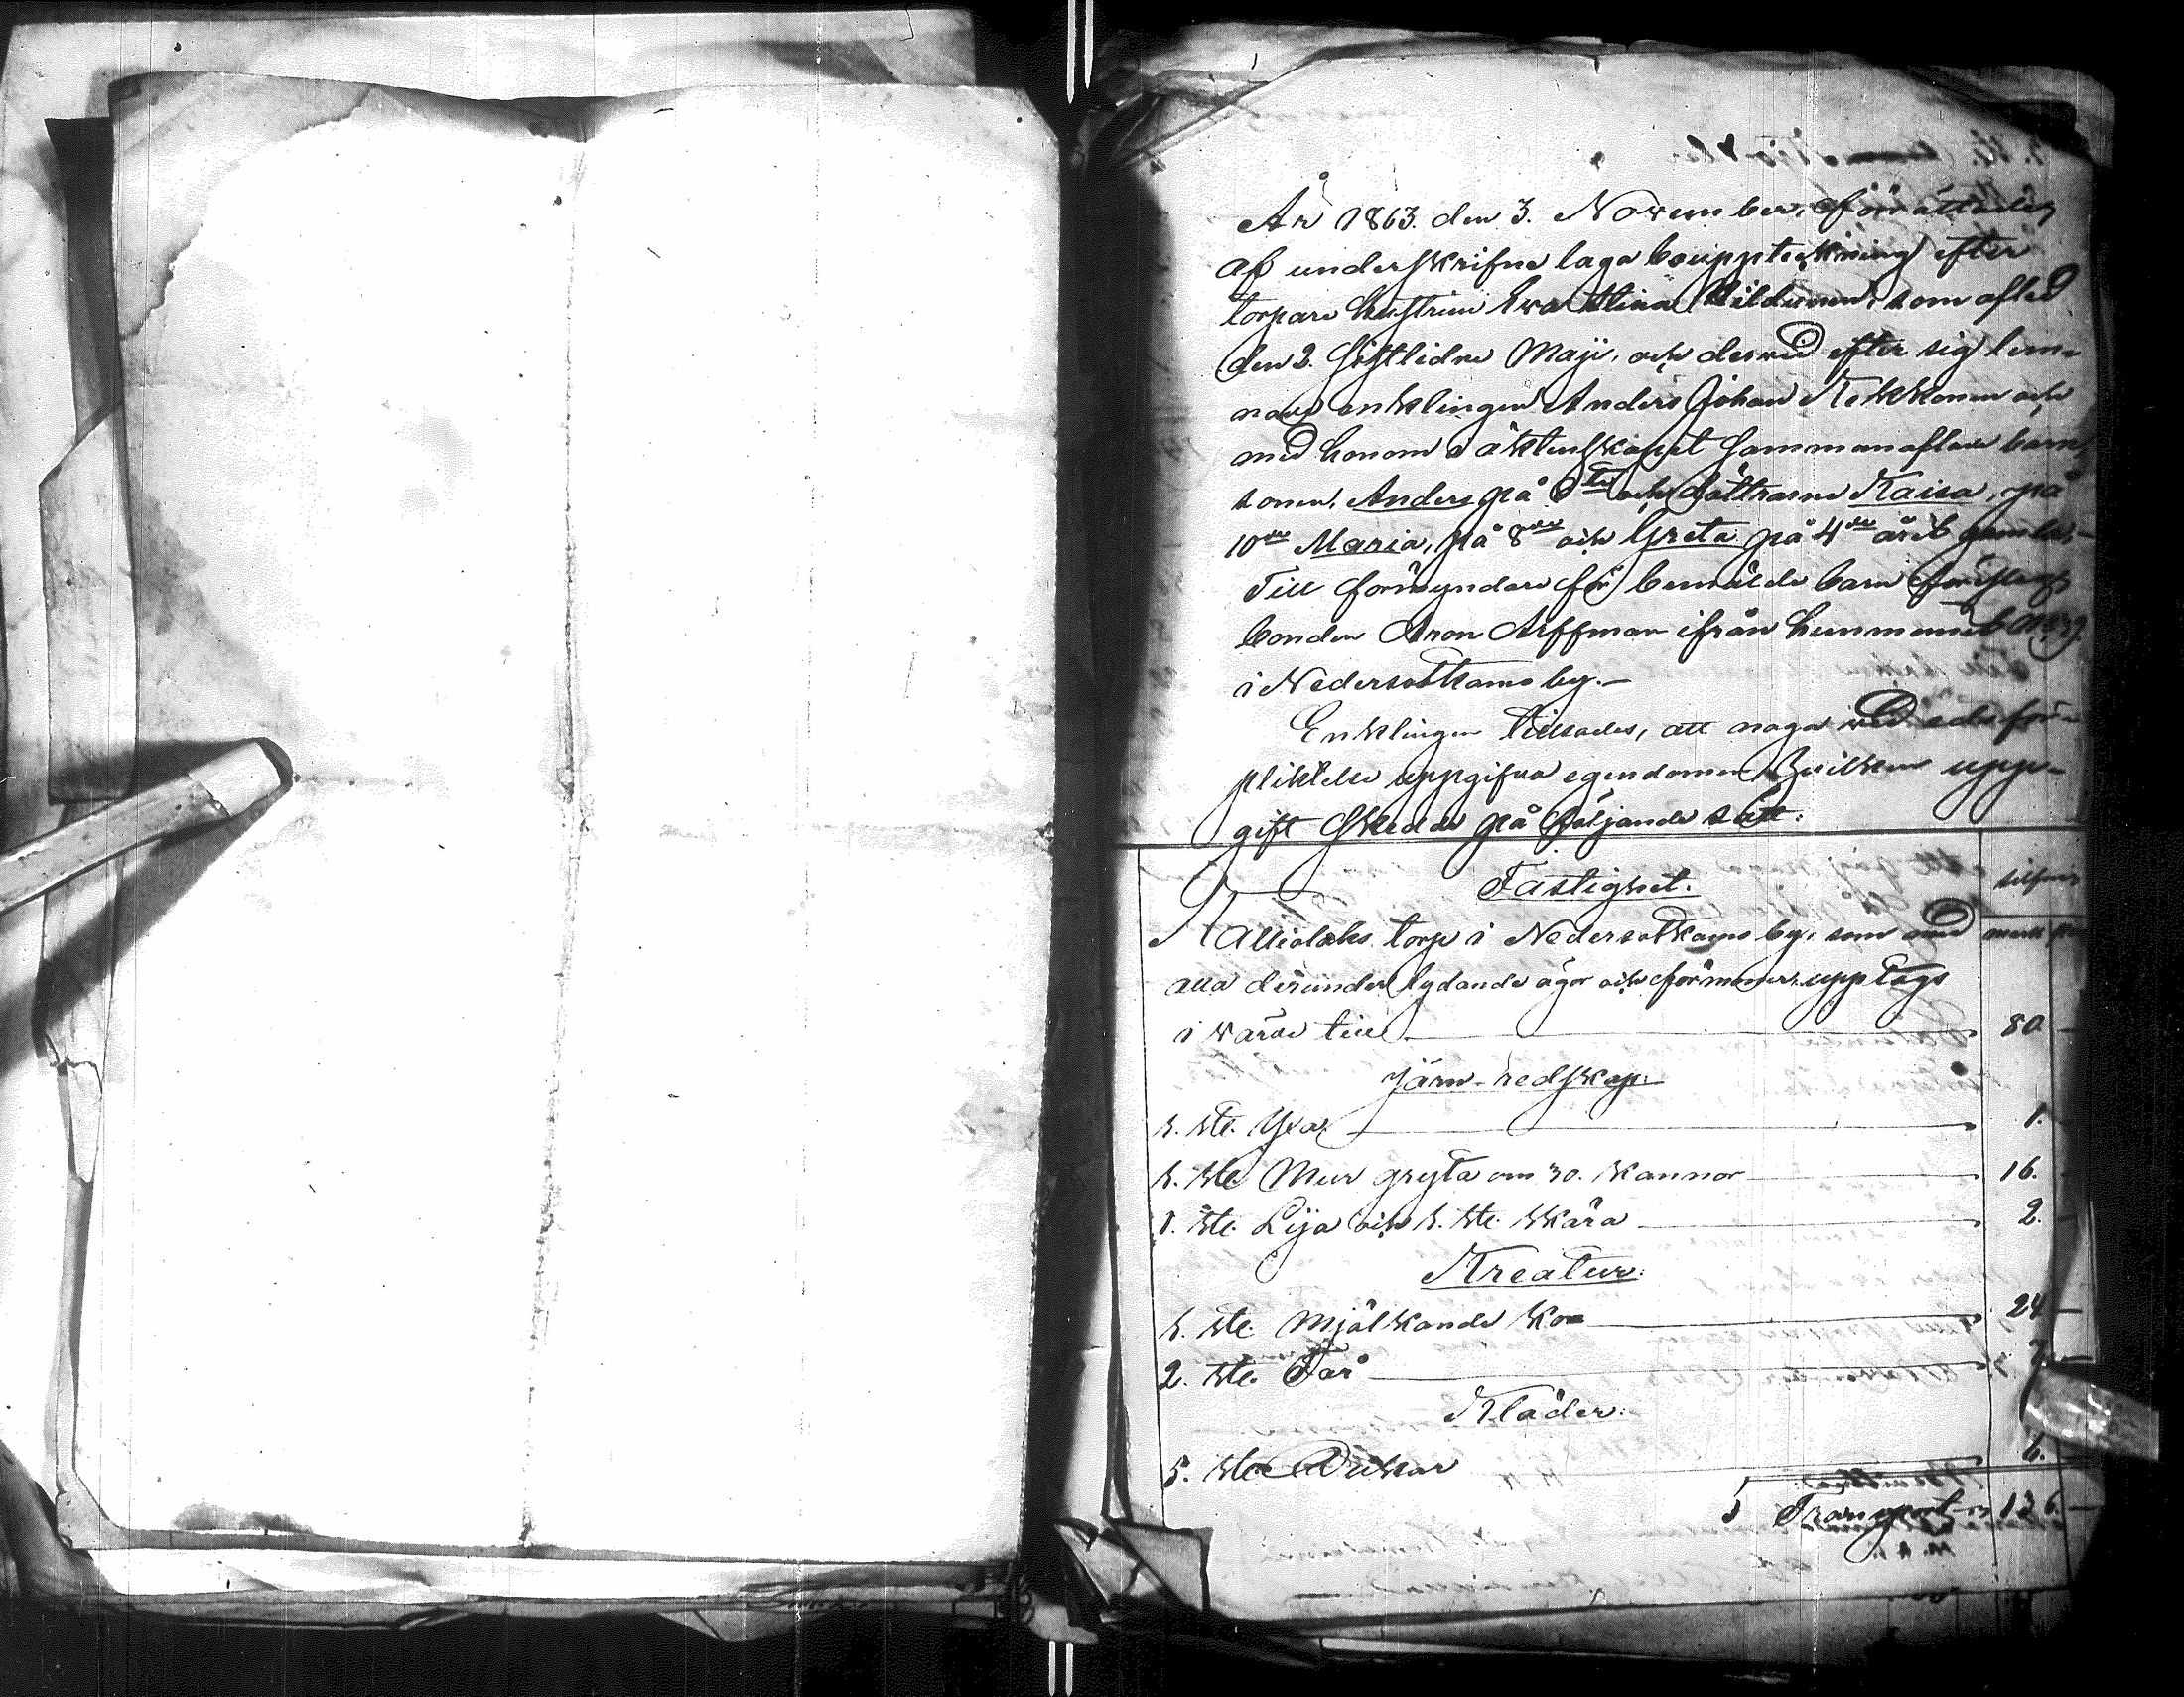 År 1863. den 3. November, förrättades
af underskrifne laga bouppteckning efter
torpare hustrun Eva Stina Kildunen, som afled
den 2. sistlidne Maji, och derwid efter sig lem-
nade enklingen Anders Johan Kekkonen och
med honom i äktenskapet sammanaflade barn
sonen, Anders på 6te och döttrarne Kaisa, på
10de Maria, på 8de och Greta på 4de året gamla,-
Till förmyndare för bemälde barn föreslogs
bonden Aron Arffman ifrån hemmanet
i Nedersotkamo by.-
Enklingen tillsades, att noga wid edsför-
pliktelse uppgifva egendomen Hvilken upp-
gift skedde på följande sätt:
Fastighet.
silfver
Kallioaho torp i Nedersotkamo by, som med
mark
alla derunder lydande ägor och förmoner, upptogs
i värde till — 80 —
Järn-redskap:
1. st. Yxa — 1. —
1. st. Mur gryta om 30. kannor — 16. —
1. st. Lija och 1. st. skära — 2. —
Kreatur:
1. st. Mjölkande ko — 24 —
2. st. Får — 7. —
Kläder:
5. st. — 6.
Transport 126. —